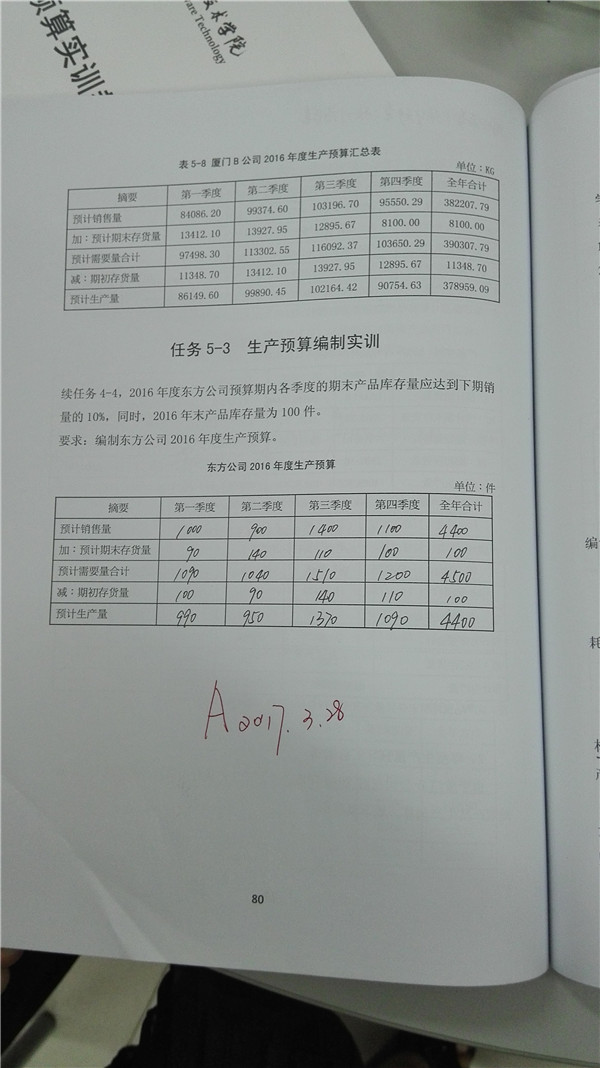 预算实训
技术学院
ware Technology
表 5-8 厦门 B 公司 2016 年度生产预算汇总表
单位：KG
摘要 第一季度 第二季度 第三季度 第四季度 全年合计
预计销售量 84086.20 99374.60 103196.70 95550.29 382207.79
加：预计期末存货量 13412.10 13927.95 12895.67 8100.00 8100.00
预计需要量合计 97498.30 113302.55 116092.37 103650.29 390307.79
减：期初存货量 11348.70 13412.10 13927.95 12895.67 11348.70
预计生产量 86149.60 99890.45 102164.42 90754.63 378959.09
任务 5-3 生产预算编制实训
续任务 4-4，2016 年度东方公司预算期内各季度的期末产品库存量应达到下期销
量的 10%，同时，2016 年末产品库存量为 100 件。
要求：编制东方公司 2016 年度生产预算。
东方公司 2016 年度生产预算
单位：件
摘要 第一季度 第二季度 第三季度 第四季度 全年合计
预计销售量 1000 900 1400 1100 4400
加：预计期末存货量 90 140 110 100 100
预计需要量合计 1090 1040 1510 1200 4500
减：期初存货量 100 90 140 110 100
预计生产量 990 950 1370 1090 4400
A 2017.3.28
80
编
耗